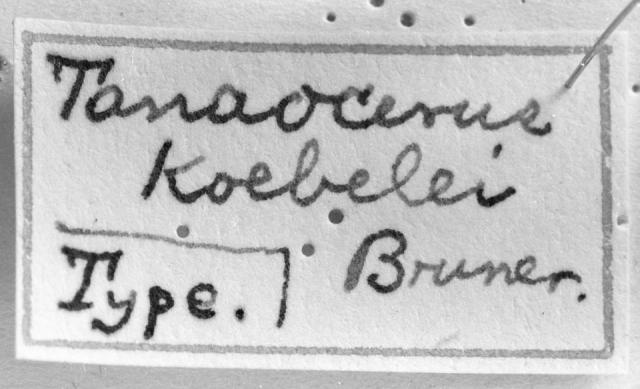 Tanaocerus
Koebelei
Bruner.
Type.